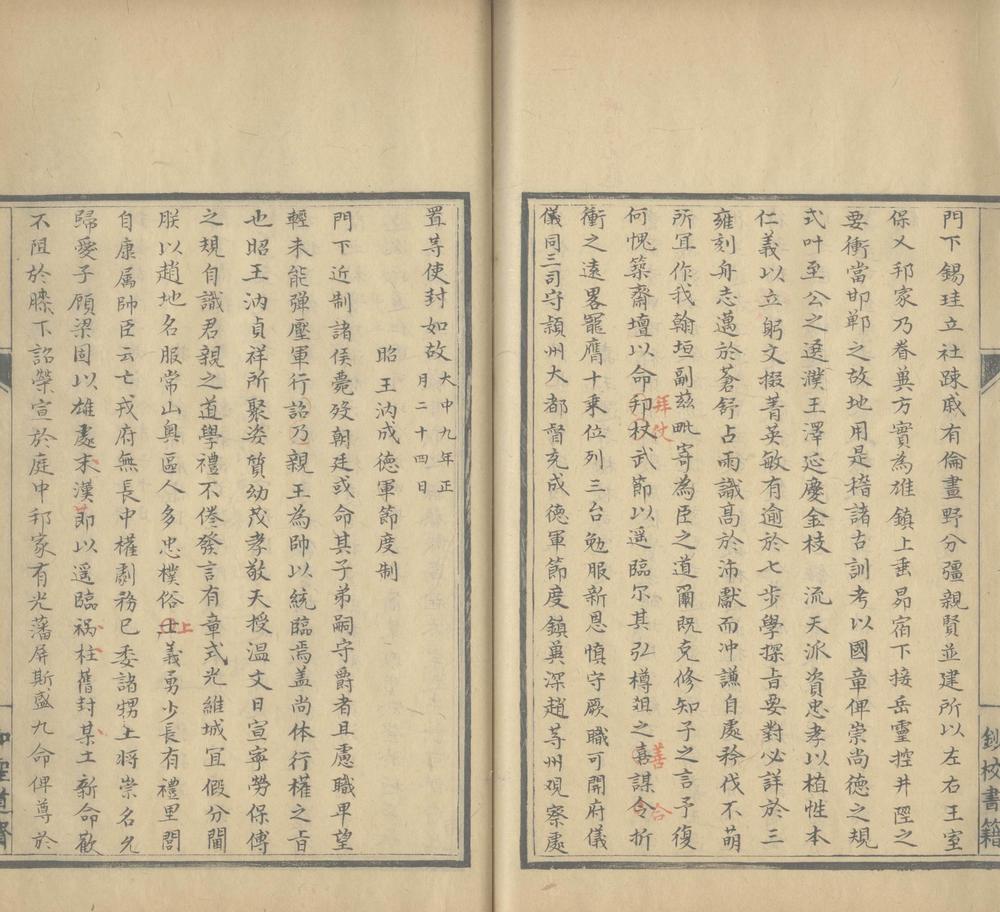 門下錫珪立社踈戚有倫畫野分疆親賢並建所以左右王室
保乂邦家乃眷冀方實為雄鎮上垂昴宿下接岳靈控井陘之
要衝當邯鄲之故地用是稽諸古訓考以國章俾崇尚德之規
式叶至公之選濮王澤延慶金枝流天派資忠孝以植性本
仁義以立躬文掞菁英敏有逾於七步學探旨要對必詳於三
雍刻舟志邁於蒼舒占雨識高於沛獻而冲謙自處矜伐不萌
所宜作我翰垣副茲毗寄為臣之道爾既克修知子之言予復
何愧築齋壇以命印杖武節以遥臨尔其弘樽俎之喜謀令折
拜仗
善合
衝之遠畧罷膺十乘位列三台勉服新恩慎守厥職可開府儀
儀同三司守潁州大都督充成德軍節度鎮冀深趙等州觀察處
鈔校書籍
置等使封如故大中九年正
月二十四日
昭王汭成德軍節度制
門下近制諸侯薨歿朝廷或命其子弟嗣守爵者且慮職卑望
輕未能彈壓軍行詔乃親王為帥以統臨焉盖尚体行權之旨
也昭王汭貞祥所聚姿質幼茂孝敬天授温文日宣寧勞保傅
之規自識君親之道學禮不倦發言有章式光維城宜假分閫
朕以趙地名服常山奥區人多忠樸俗士義勇少長有禮里閭
上
自康属帥臣云亡戎府無長中權劇務已委諸甥上將崇名允
歸愛子顧梁固以雄處末漢節以遥臨禍柱舊封某土新命歡
不阻於膝下詔榮宣於庭中邦家有光藩屏斯盛九命俾尊於
知聖道齋